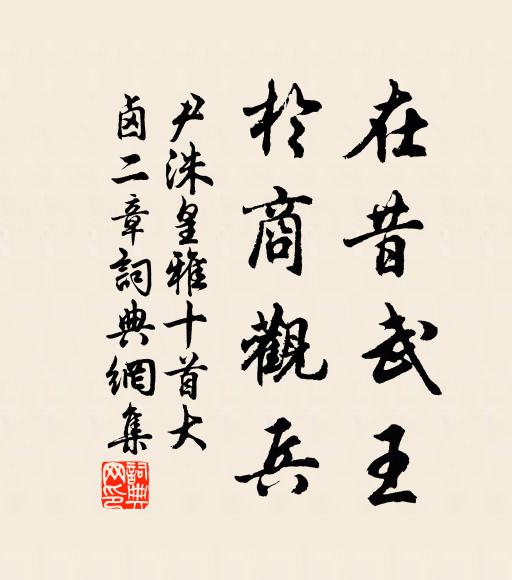 在昔武王
於商觀兵
尹洙皇雅十首大
鹵二章詞典網集
詞典
网印